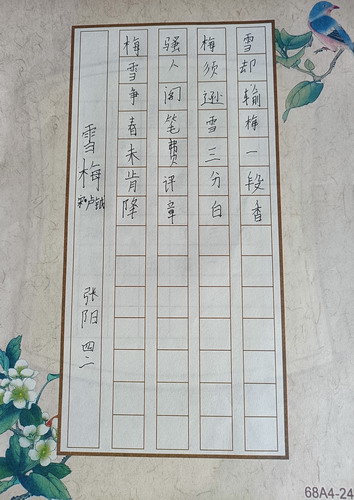 雪梅
宋 卢钺
张阳 四二
梅雪争春未肯降
骚人阁笔费评章
梅须逊雪三分白
雪却输梅一段香
68A4-24